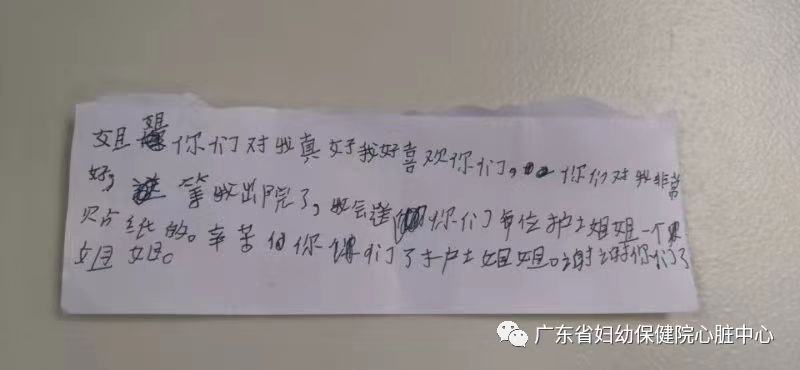 姐姐你们对我真好我好喜欢你们，你们对我非常
好，等我出院了，我会送你们每位护士姐姐一个
贴纸的。辛苦你们了护士姐姐。谢谢你们了
姐姐。
广东省妇幼保健院心脏中心